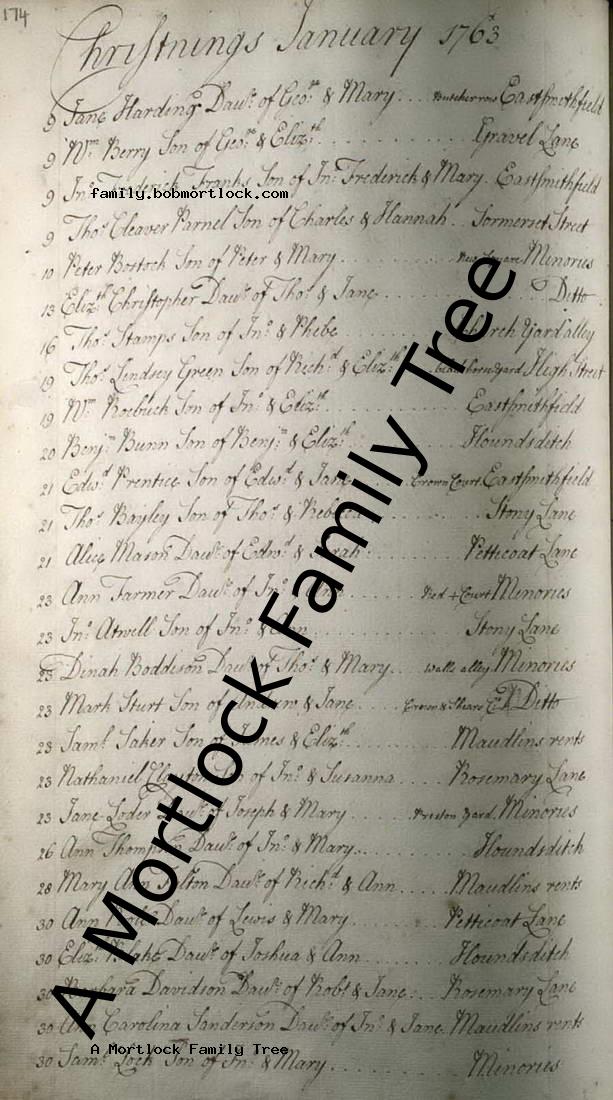 174
Christnings January 1763
9 Jane Harding Daur. of Geoe. & Mary... Butcher row Eastsmithfield
9 Wm. Berry Son of Geoe. & Elizth. Gravel Lane
9 Jno. Frederick Franks Son of Jno. Frederick & Mary. Eastsmithfield
family.bobmortlock.com
9 Thos. Cleaver Parnel Son of Charles & Hannah.. Somerset Street
10 Peter Bostock Son of Peter & Mary New Square Minories
13 Elizth. Christopher Daur. of Thos. & Jane Ditto
16 Thos. Stamps Son of Jno. & Phebe Church Yard alley
19 Thos. Lindsey Green Son of Richd. & Elizth. Yard High Street
19 Wm. Roebuck Son of Jno. & Elizth. Eastsmithfield
20 Benjn. Bunn Son of Benjn. & Elizth. Houndsditch
21 Edwd. Prentice Son of Edwd. & Jane Crown Court Eastsmithfield
21 Thos. Bayley Son of Thos. & Stony Lane
21 Alice Mason Daur. of Edwd. & Petticoat Lane
23 Ann Farmer Daur. of Jno. Court Minories
23 Jno. Atwell Son of Jno. & Ann Stony Lane
23 Dinah Boddison Daur. of Thos. & Mary.. Walls alley Minories
23 Mark Sturt Son of Andrew & Jane Crown & Shears Ct. Ditto
23 Saml. Saker Son of James & Elizth. Maudlins rents
23 Nathaniel Son of Jno. & Susanna.... Rosemary Lane
23 Jane Loder Daur. of Joseph & Mary Preston Yard Minories
26 Ann Thompson Daur. of Jno. & Mary.. Houndsditch
28 Mary Ann Daur. of Richd. & Ann..... Maudlins rents
30 Ann Daur. of Lewis & Mary Petticoat Lane
30 Elizth. Blake Daur. of Joshua & Ann Houndsditch
30 Barbara Davidson Daur. of Robt. & Jane... Rosemary Lane
30 Ann Carolina Sanderson Daur. of Jno. & Jane. Maudlins rents
30 Saml. Lock Son of Jno. & Mary Minories
A Mortlock Family Tree
A Mortlock Family Tree